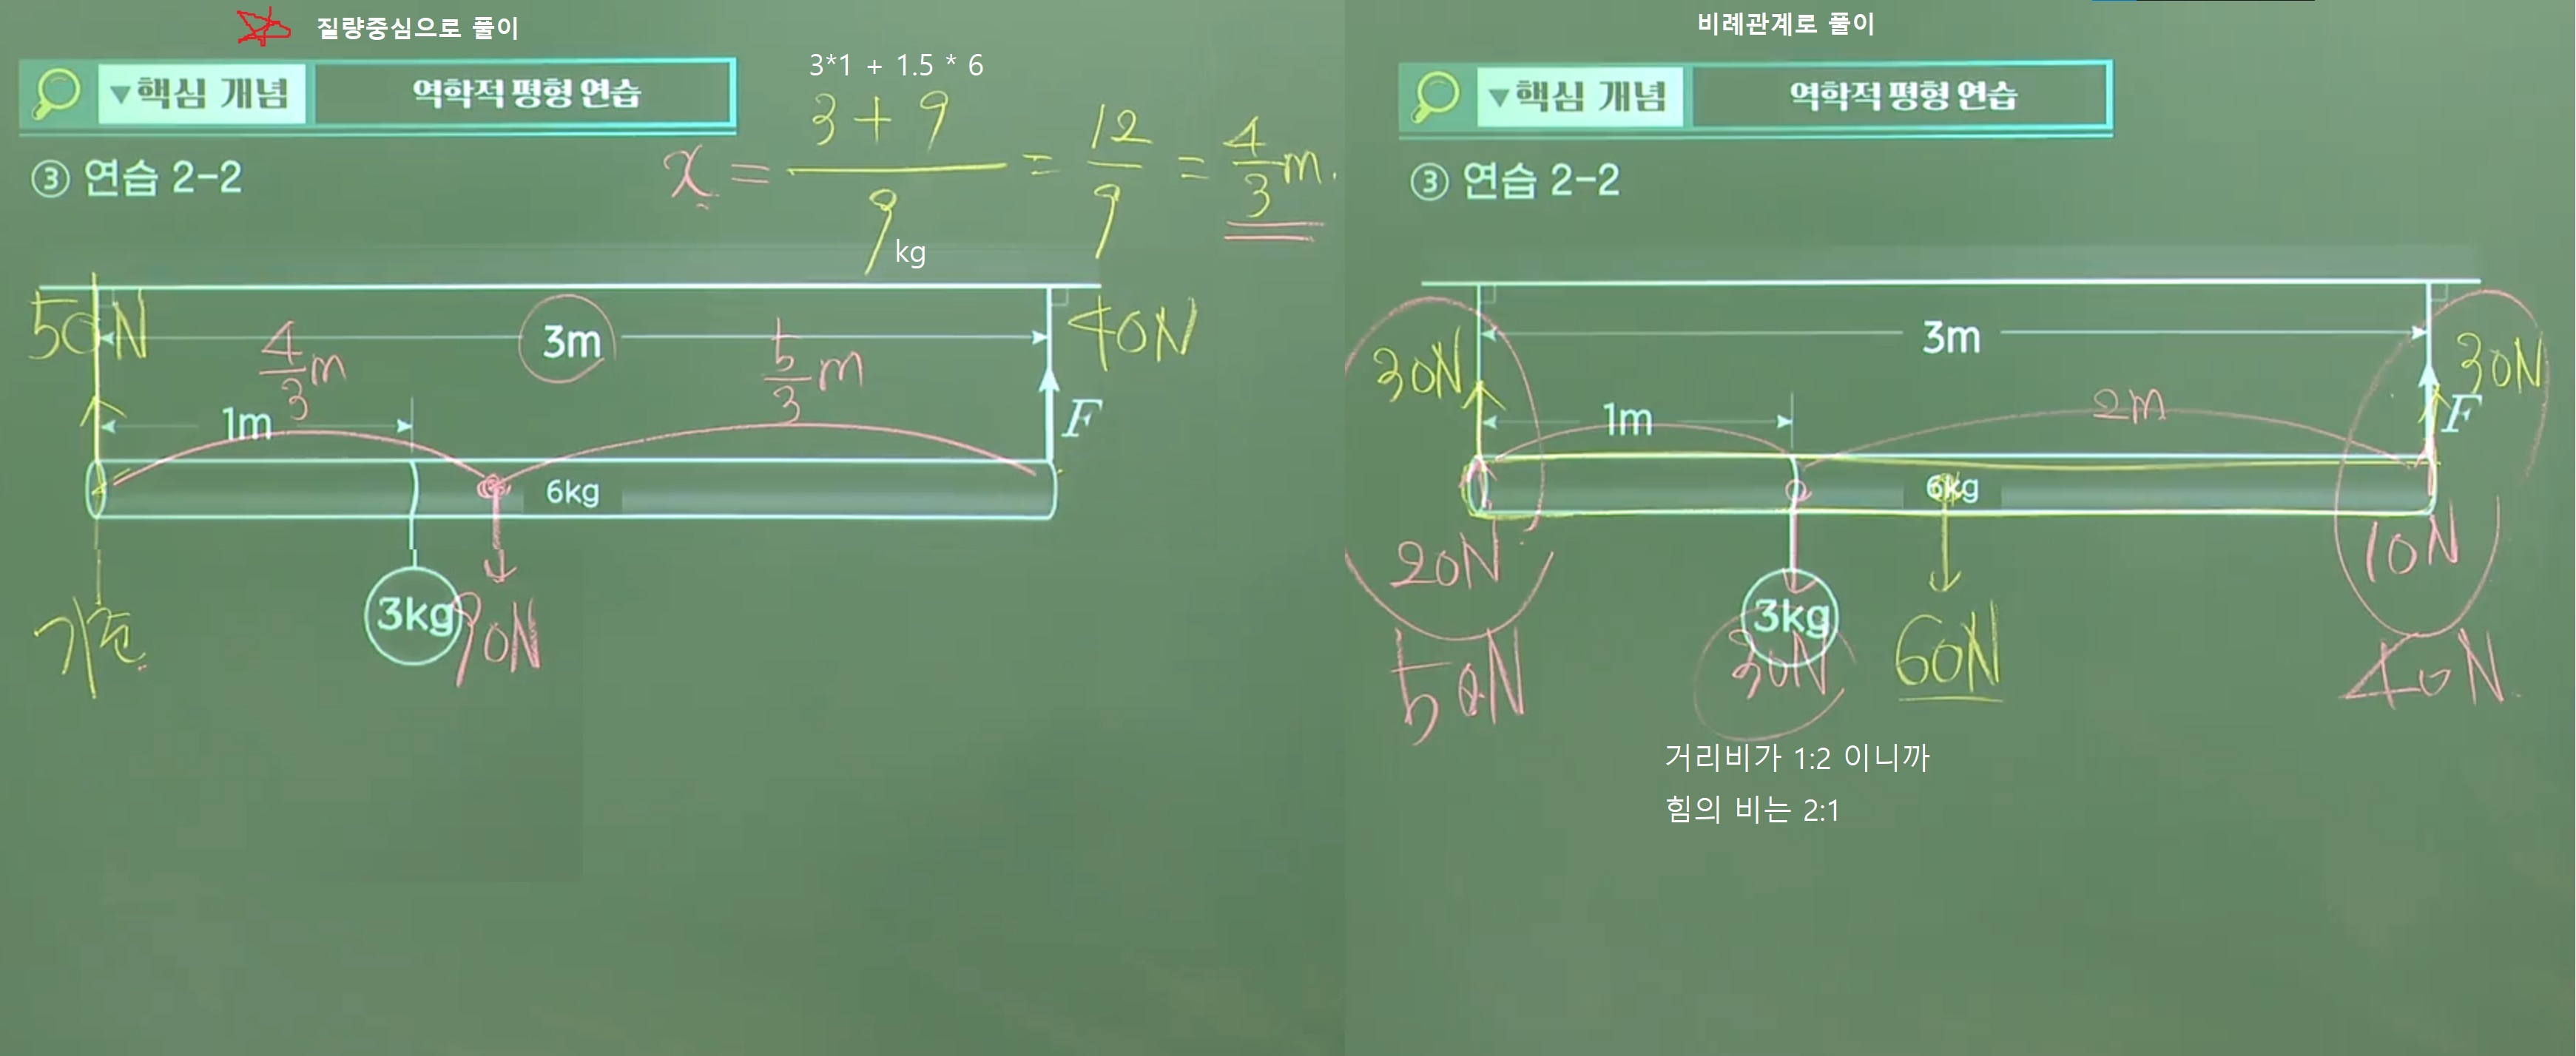 질량중심으로 풀이
3*1 + 1.5 * 6
▼핵심 개념 역학적 평형 연습
③ 연습 2-2
x = 3 + 9 / 9 kg = 12 / 9 = 4/3 m.
50N
3m
40N
4/3 m
5/3 m
1m
F
6kg
3kg
90N
기준
비례관계로 풀이
▼핵심 개념 역학적 평형 연습
③ 연습 2-2
3m
30N
30N
1m
2m
F
6kg
20N
10N
3kg
30N
60N
50N
40N.
거리비가 1:2 이니까
힘의 비는 2:1